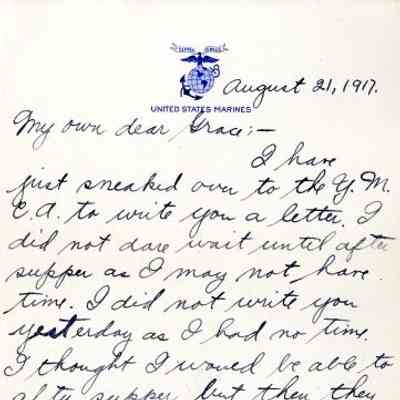 SEMPER FIDELIS
August 21, 1917.
UNITED STATES MARINES
My own dear Grace:—
I have
just sneaked over to the Y. M.
C. A. to write you a letter. I
did not dare wait until after
supper as I may not have
time. I did not write you
yesterday as I had no time.
I thought I would be able to
after supper, but then they